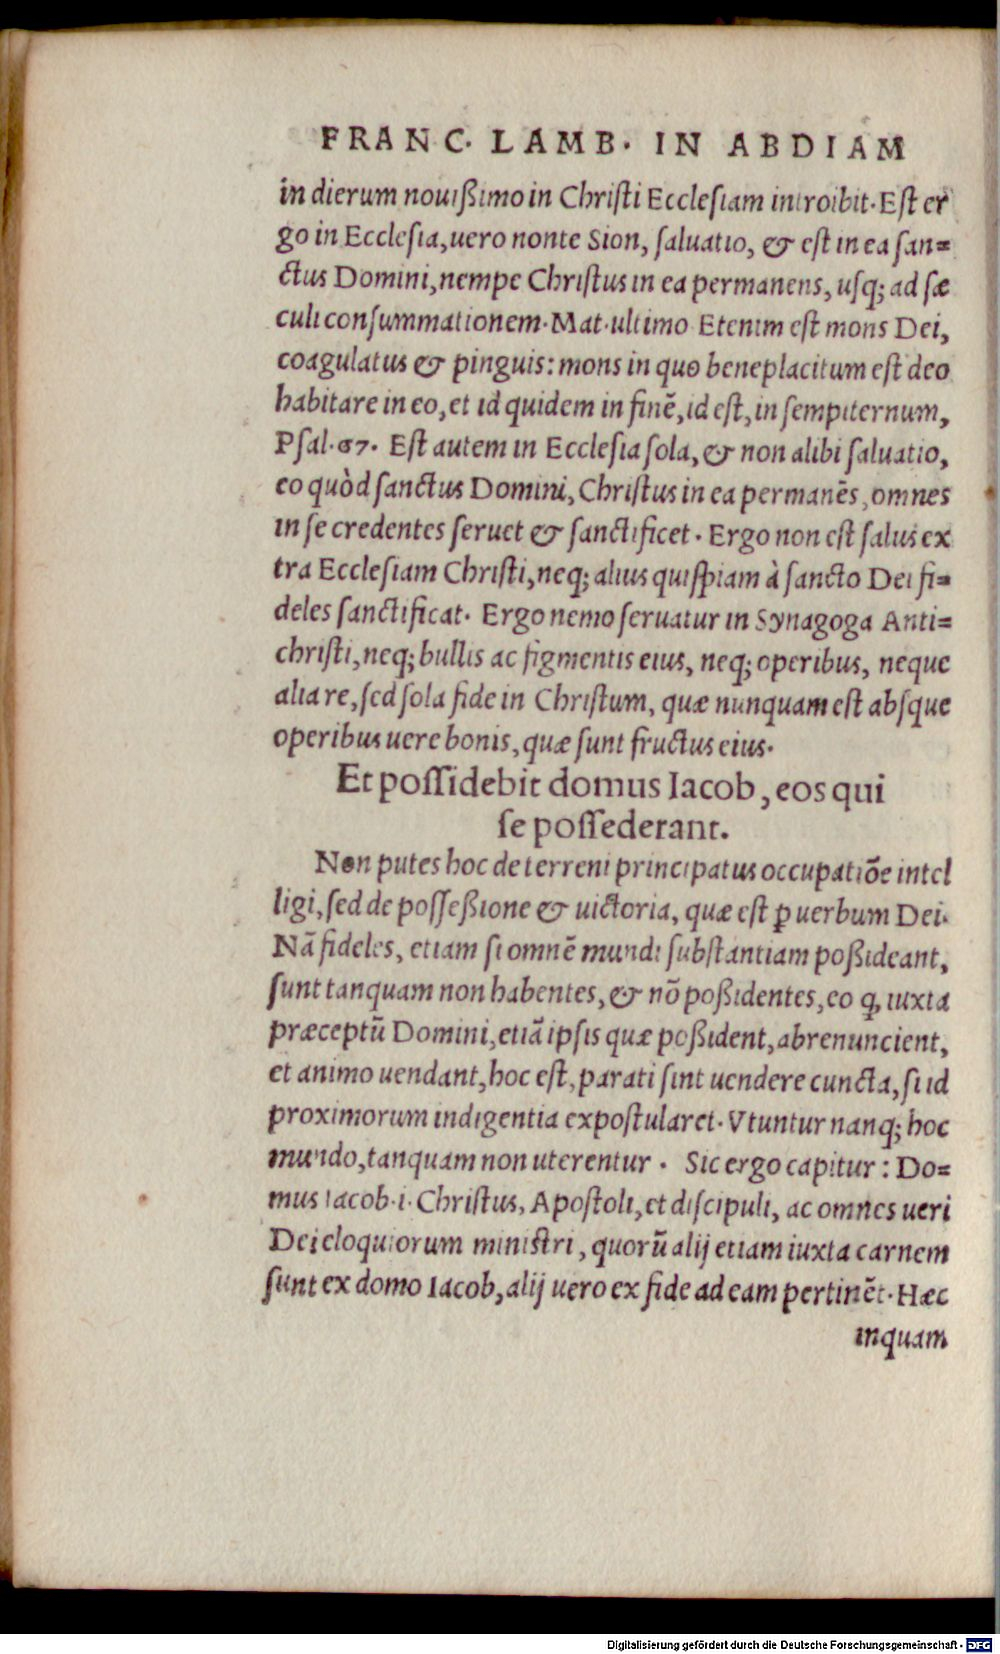 FRANC. LAMB. IN ABDIAM
in dierum nouißimo in Christi Ecclesiam introibit. Est er
go in Ecclesia, uero nonte Sion, saluatio, & est in ea san=
ctus Domini, nempe Christus in ea permanens, usq; ad sæ
culi consummationem. Mat. ultimo Etenim est mons Dei,
coagulatus & pinguis: mons in quo beneplacitum est deo
habitare in eo, et id quidem in finē, id est, in sempiternum,
Psal. 67. Est autem in Ecclesia sola, & non alibi saluatio,
eo quòd sanctus Domini, Christus in ea permanēs, omnes
in se credentes seruet & sanctificet. Ergo non est salus ex
tra Ecclesiam Christi, neq; alius quispiam à sancto Dei fi=
deles sanctificat. Ergo nemo seruatur in Synagoga Anti=
christi, neq; bullis ac figmentis eius, neq; operibus, neque
alia re, sed sola fide in Christum, quæ nunquam est absque
operibus uere bonis, quæ sunt fructus eius.
Et possidebit domus Iacob, eos qui
se possederant.
Non putes hoc de terreni principatus occupatiōe intel
ligi, sed de possessione & uictoria, quæ est ꝑ uerbum Dei.
Nā fideles, etiam si omnē mundi substantiam poßideant,
sunt tanquam non habentes, & nō poßidentes, eo ꝙ, iuxta
præceptū Domini, etiā ipsis quæ poßident, abrenuncient,
et animo uendant, hoc est, parati sint uendere cuncta, si id
proximorum indigentia expostularet. Vtuntur nanq; hoc
mundo, tanquam non uterentur. Sic ergo capitur: Do=
mus Iacob .i. Christus, Apostoli, et discipuli, ac omnes ueri
Dei eloquiorum ministri, quorū alij etiam iuxta carnem
sunt ex domo Iacob, alij uero ex fide ad eam pertinēt. Hæc
inquam
Digitalisierung gefördert durch die Deutsche Forschungsgemeinschaft - DFG